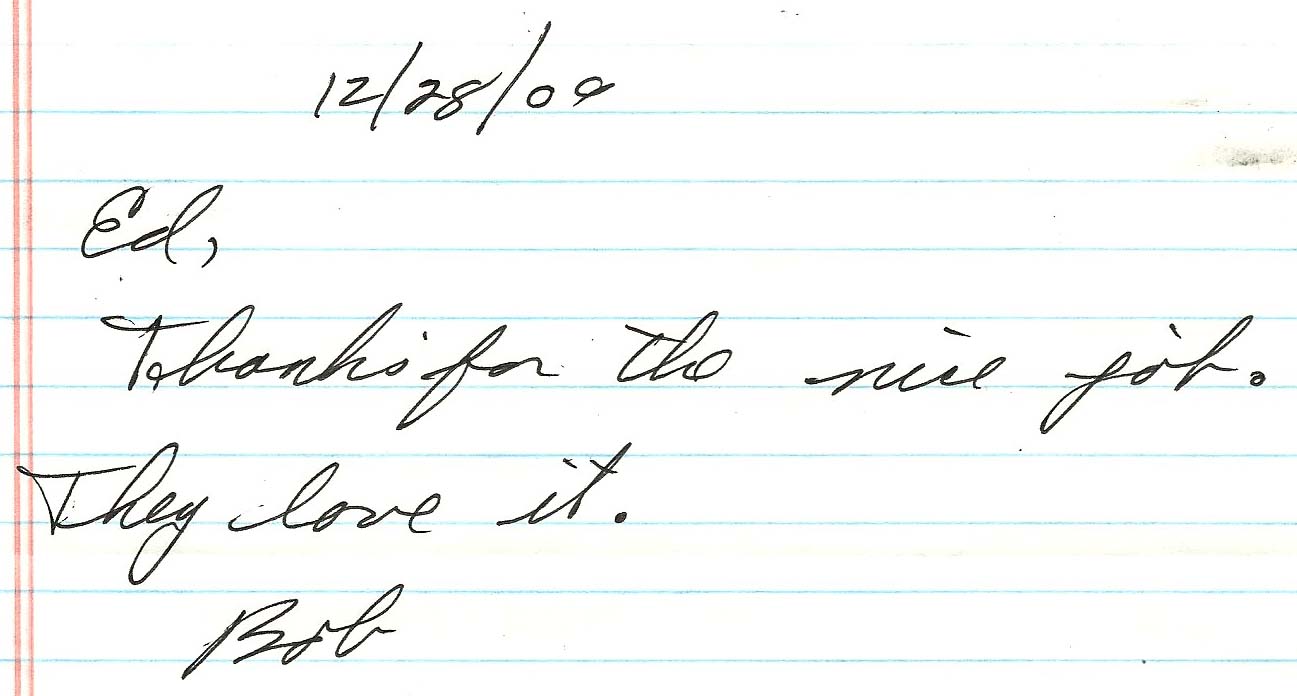 12/28/09
Ed,
Thanks for the nice job.
They love it.
Bob